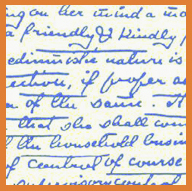 ing on her mind a
a friendly & kindly
edimistic nature is
ection, if proper a
of the same it
that she shall con
the household busi
of control of course